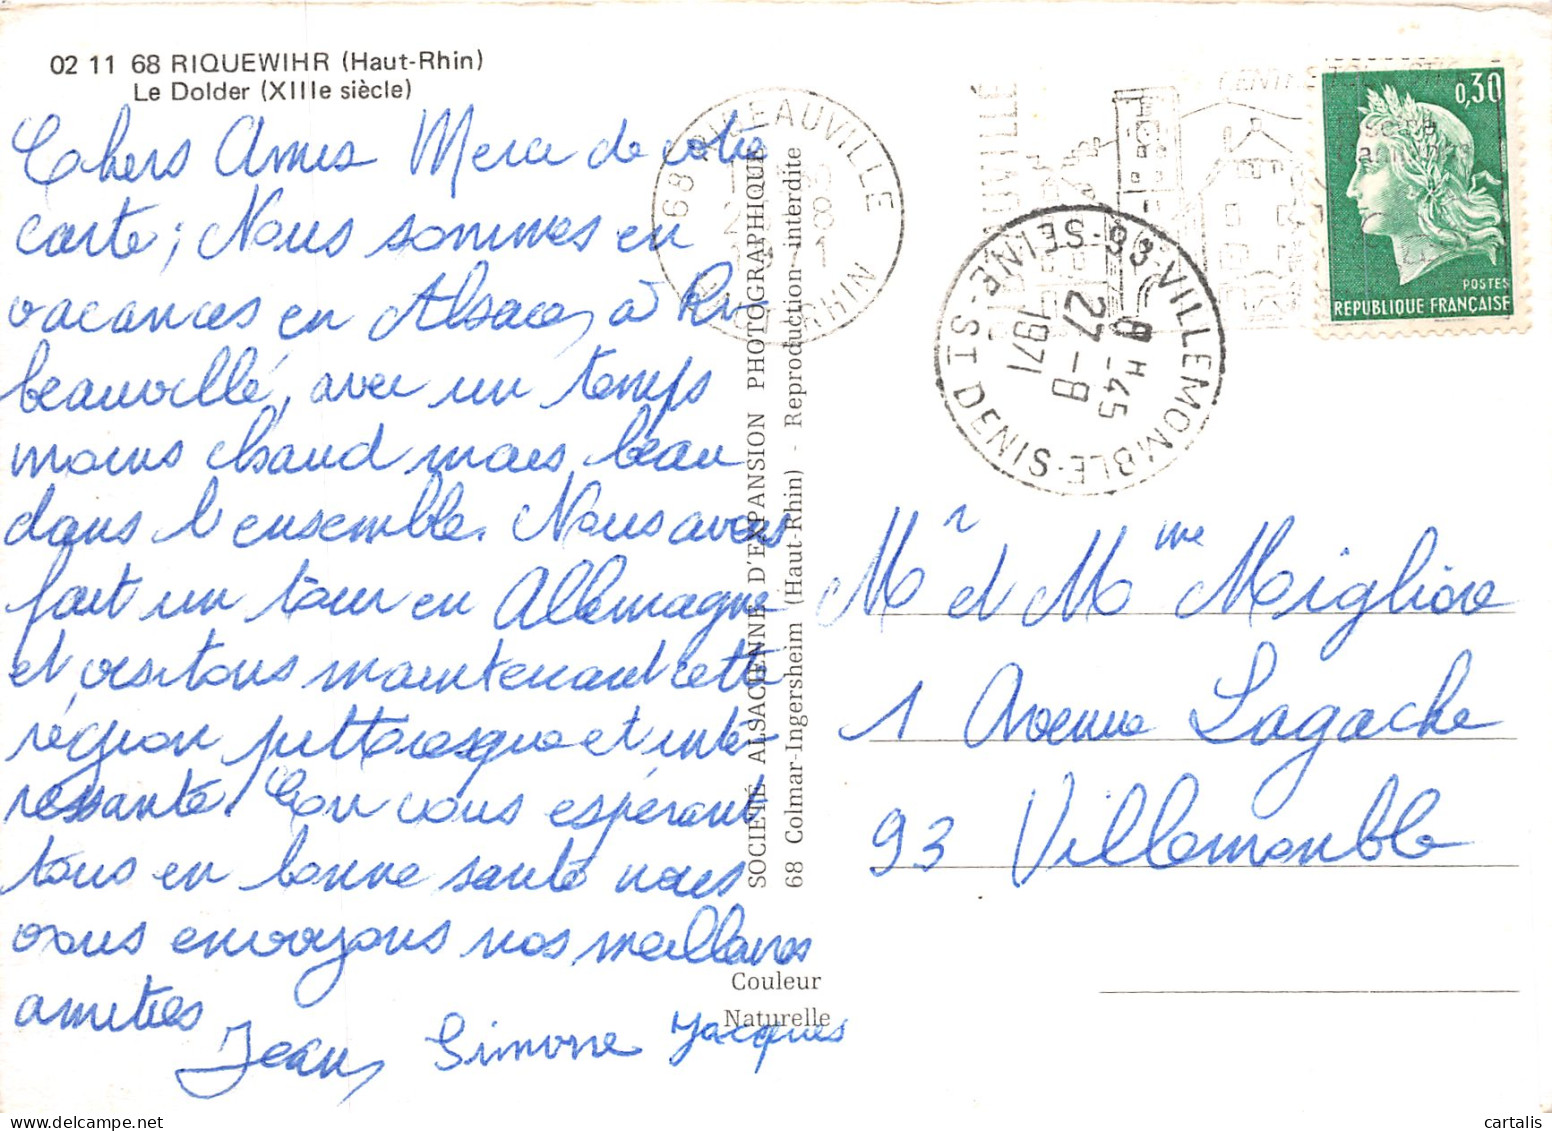 02 11 68 RIQUEWIHR (Haut-Rhin)
Le Dolder (XIIIe siècle)
Chers Amis Merci de votre
carte; Nous sommes en
vacances en Alsace, à Ri-
beauvillé, avec un temps
moins chaud mais beau
dans l'ensemble. Nous avons
fait un tour en Allemagne
et visitons maintenant cette
région pittoresque et inté-
ressante. En vous espérant
tous en bonne santé nous
vous envoyons nos meilleures
amitiés
Jean, Simone Jacques
SOCIÉTÉ ALSACIENNE D'EXPANSION PHOTOGRAPHIQUE
68 Colmar-Ingersheim (Haut-Rhin) - Reproduction interdite
Couleur
Naturelle
68 RIBEAUVILLE
HAUT-RHIN
93-VILLEMOMBLE-SINE-ST DENIS-SEINE
8H45
27-8
1971
0,30
POSTES
REPUBLIQUE FRANÇAISE
Mr et Mme Migliore
1 Avenue Lagache
93 Villemomble
cartalis